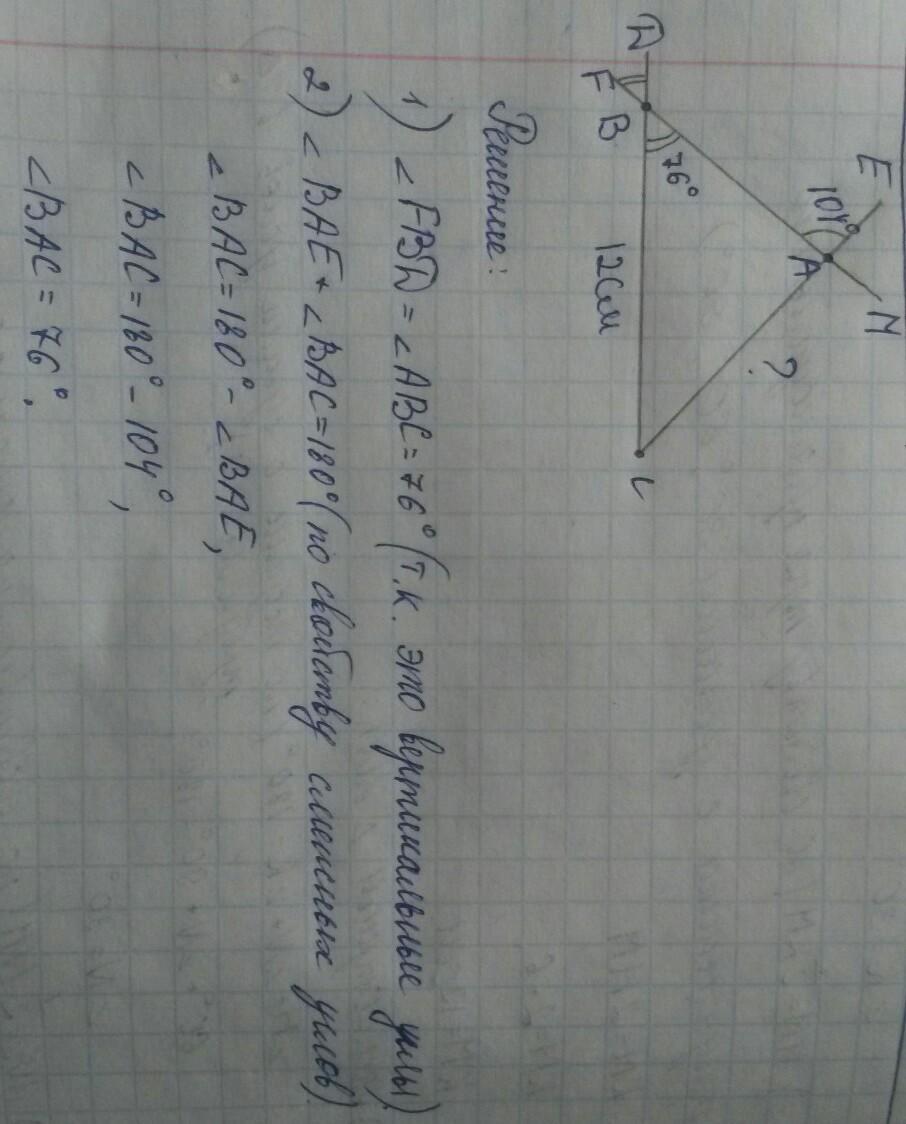 E
M
104°
A
?
76°
D
F
B
12см
C
Решение:
1) ∠FBD = ∠ABC = 76° (т.к. это вертикальные углы)
2) ∠BAE + ∠BAC = 180° (по свойству смежных углов)
∠BAC = 180° - ∠BAE,
∠BAC = 180° - 104°,
∠BAC = 76°.